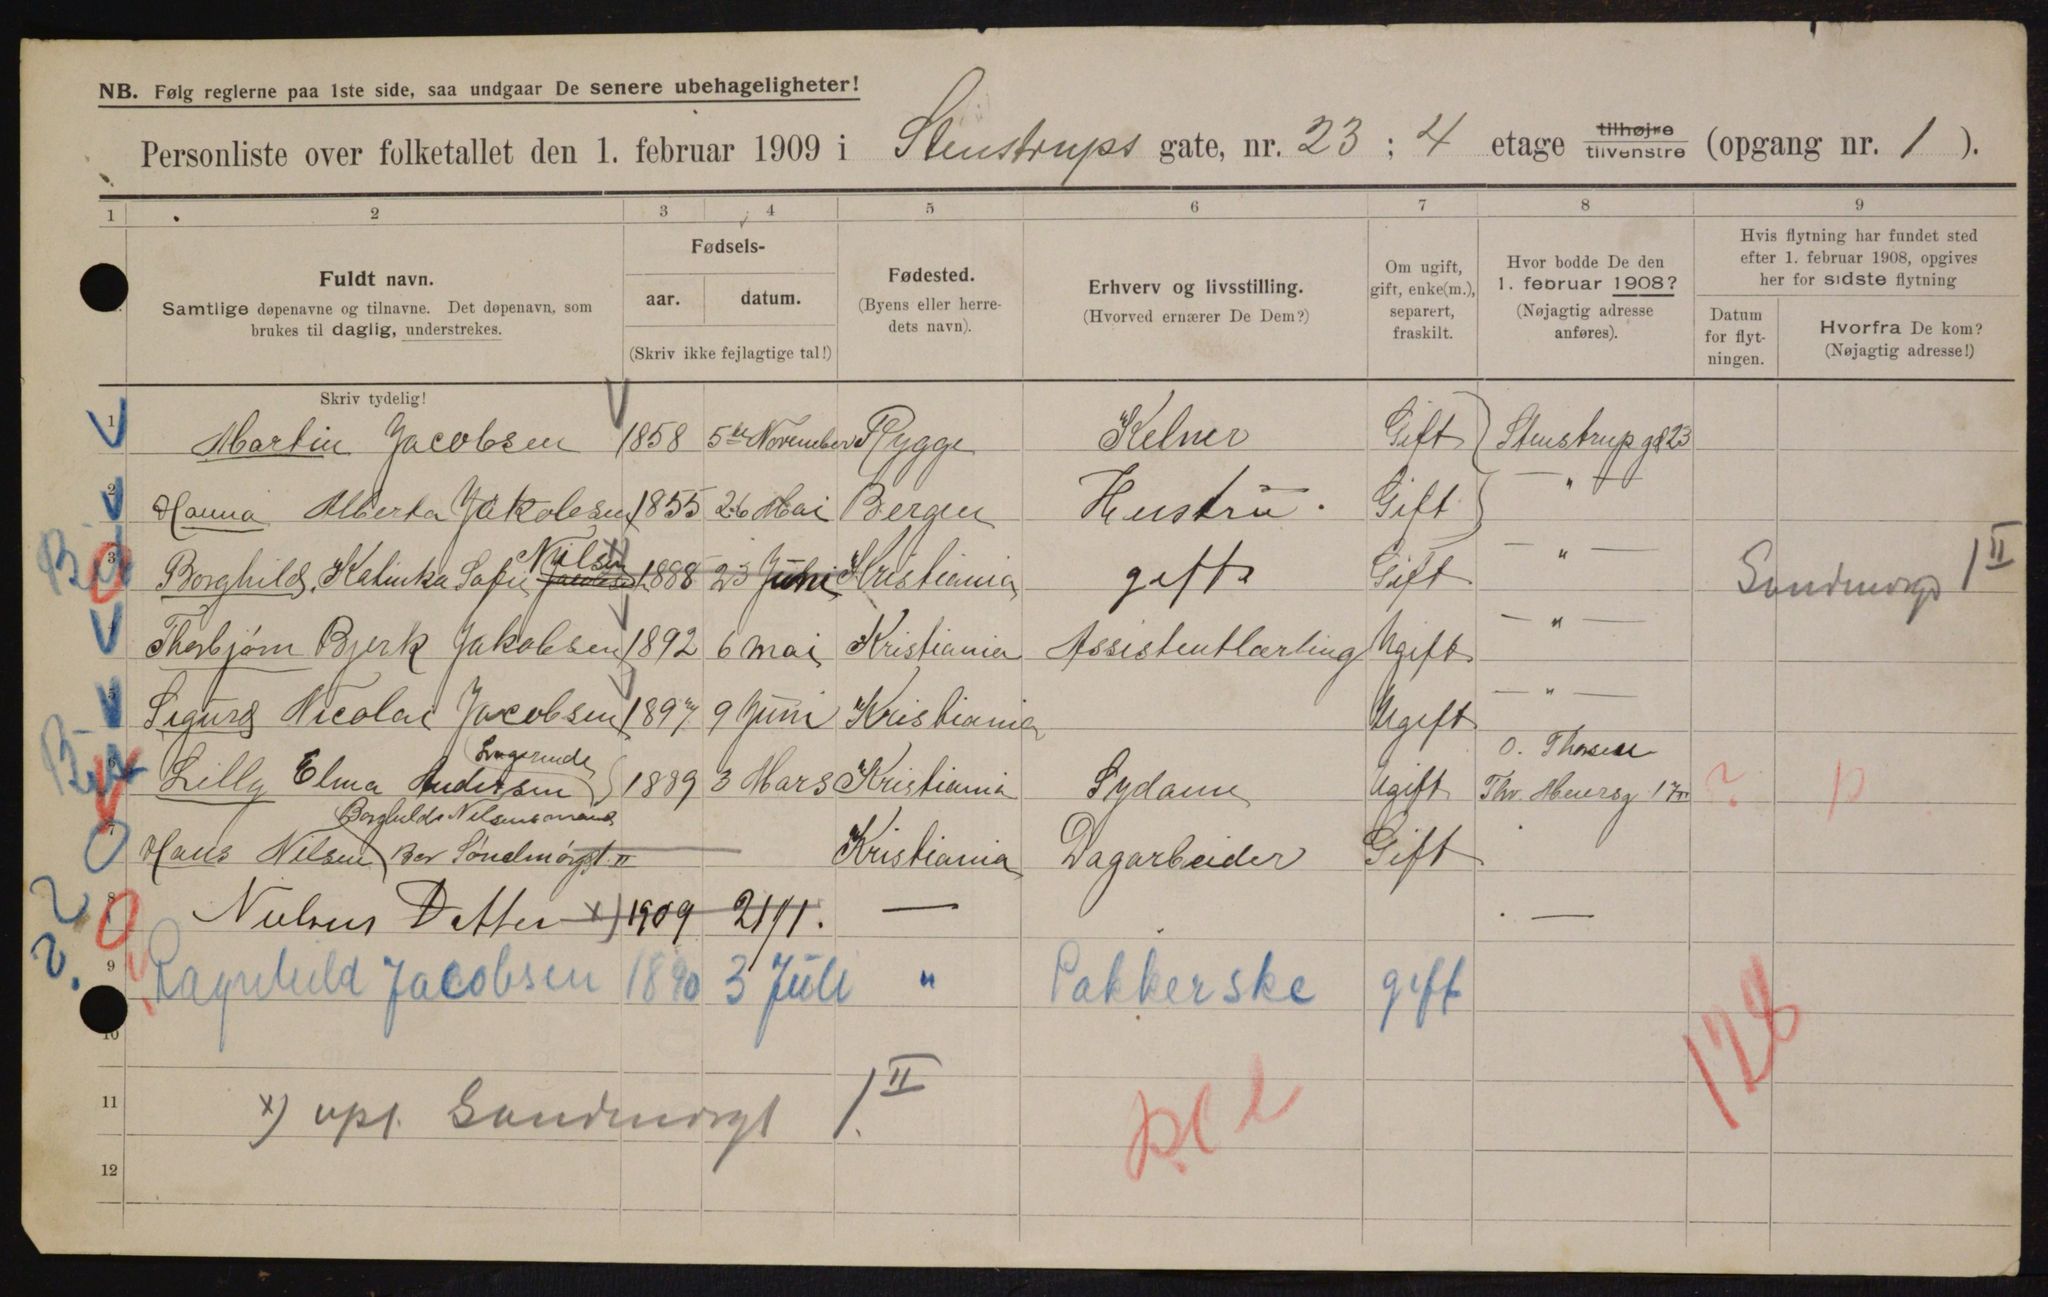 NB. Følg reglerne paa 1ste side, saa undgaar De senere ubehageligheter!
Personliste over folketallet den 1. februar 1909 i Stenstrups gate, nr. 23 ; 4 etage tilhøjre tilvenstre (opgang nr. 1 ).
1 2 3 4 5 6 7 8 9
Fuldt navn.
Samtlige døpenavne og tilnavne. Det døpenavn, som
brukes til daglig, understrekes.
Fødsels-
aar. datum.
(Skriv ikke fejlagtige tal!)
Fødested.
(Byens eller herre-
dets navn).
Erhverv og livsstilling.
(Hvorved ernærer De Dem?)
Om ugift,
gift, enke(m.),
separert,
fraskilt.
Hvor bodde De den
1. februar 1908?
(Nøjagtig adresse
anføres).
Hvis flytning har fundet sted
efter 1. februar 1908, opgives
her for sidste flytning
Datum
for flyt-
ningen.
Hvorfra De kom?
(Nøjagtig adresse!)
Skriv tydelig!
1 Martin Jacobsen 1858 5te November Rygge Kelner Gift Stenstrupgd 23
2 Hanna Alberta Jakobsen 1855 26 Mai Bergen Hustru. Gift — " —
Nilsen
3 Borghild Katinka Sofie Jacobsen 1888 23 Juni Kristiania gift Gift — " — Sondmorgd 1 II
4 Thorbjørn Bjerk Jakobsen 1892 6 mai Kristiania Assistentlærling Ugift — " —
5 Sigurd Nicolai Jacobsen 1897 9 Juni Kristiania Ugift — " —
Logerende O. Thorsen
6 Lilly Elma Andersen 1889 3 Mars Kristiania Sydame Ugift Thv. Meyersg 17 ? p
Borghilds Nilsens mand
7 Hans Nilsen Bor Søndmørgt. II Kristiania Dagarbeider Gift
8 Nielsens Datter x) 1909 21/1. — —
9 Ragnhild Jacobsen 1890 3 Juli " Pakkerske gift
10
128
11 x) opf. Sondmorgt 1. II
12